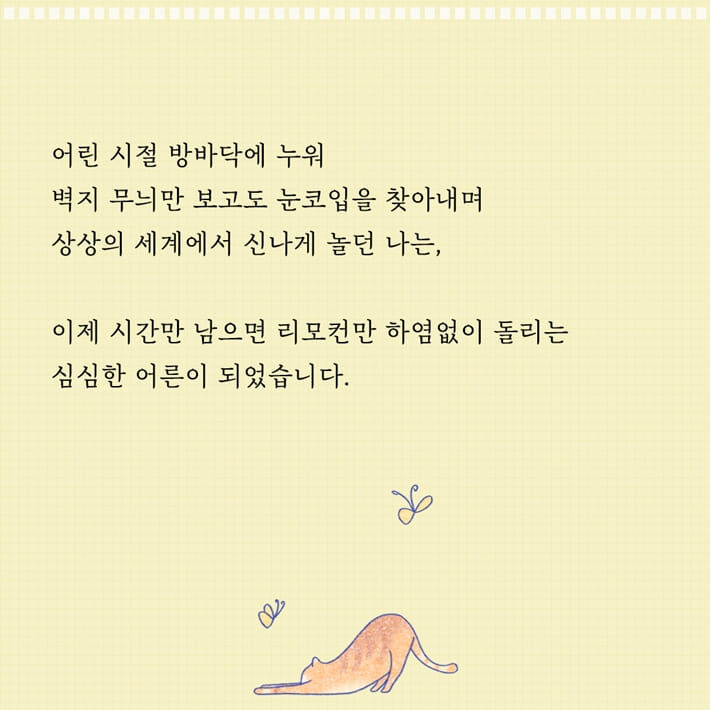 어린 시절 방바닥에 누워
벽지 무늬만 보고도 눈코입을 찾아내며
상상의 세계에서 신나게 놀던 나는,
이제 시간만 남으면 리모컨만 하염없이 돌리는
심심한 어른이 되었습니다.